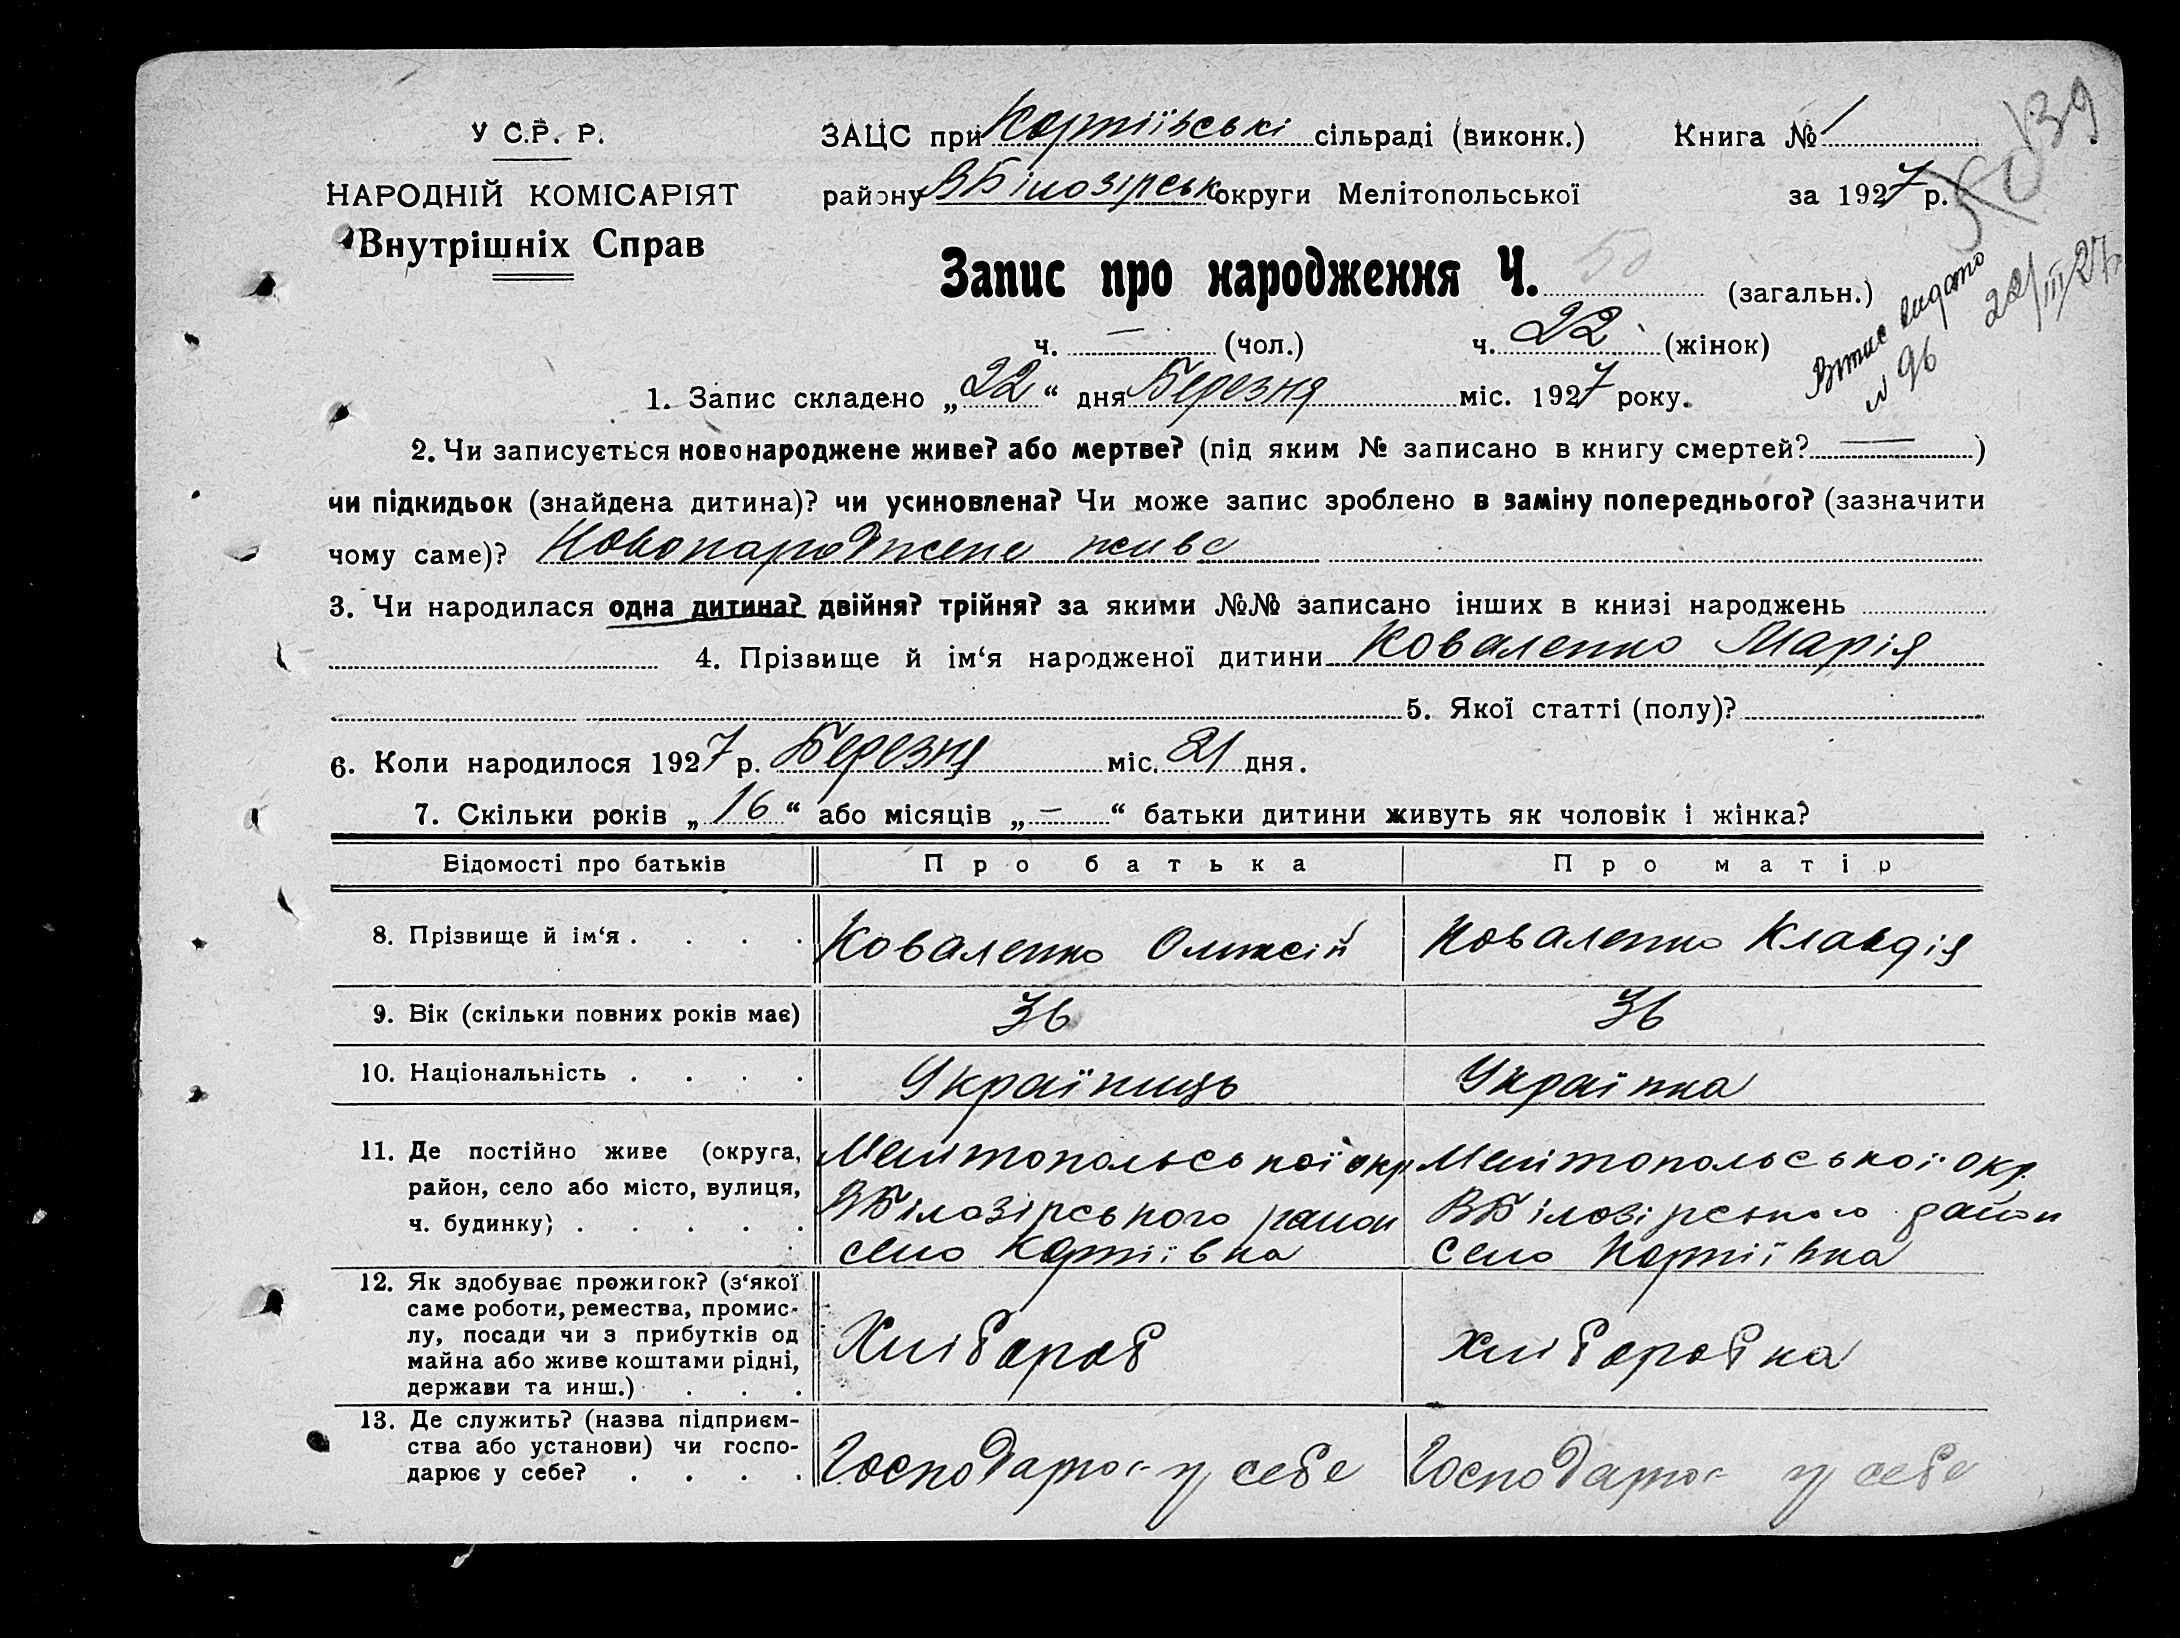 У С.Р. Р.
НАРОДНІЙ КОМІСАРІЯТ
Внутрішніх Справ
ЗАЦС при Картіївські сільраді (виконк.) Книга № 1
139
району ВБілозірськ округи Мелітопольської за 1927 р.
50
Запис про народження Ч. 50 (загальн.)
ч. — (чол.) ч. 22 (жінок)
Витяг видано 22/III/27р
№ 96
1. Запис складено „22“ дня Березня міс. 1927 року.
2. Чи записується новонароджене живе? або мертве? (під яким № записано в книгу смертей? — )
чи підкидьок (знайдена дитина)? чи усиновлена? Чи може запис зроблено в заміну попереднього? (зазначити
чому саме)? Новонароджене живе
3. Чи народилася одна дитина? двійня? трійня? за якими №№ записано інших в книзі народжень
4. Прізвище й ім‘я народженої дитини Коваленко Марія
5. Якої статті (полу)?
6. Коли народилося 1927 р. Березня міс. 21 дня.
7. Скільки років „16“ або місяців „–“ батьки дитини живуть як чоловік і жінка?
Відомості про батьків Про батька Про матір
8. Прізвище й ім‘я . . . . Коваленко Олексій Коваленко Клавдія
9. Вік (скільки повних років має) 36 36
10. Національність . . . . Українць Українка
11. Де постійно живе (округа,
район, село або місто, вулиця,
ч. будинку) . . . . .
Мелітопольської окр
ВБілозірського район
село Картіївка
Мелітопольської окр.
ВБілозірського район
село Картіївка
12. Як здобуває прожиток? (з‘якої
саме роботи, ремества, промис-
лу, посади чи з прибутків од
майна або живе коштами рідні,
держави та инш.) . . .
Хлібороб Хліборобка
13. Де служить? (назва підприєм-
ства або установи) чи госпо-
дарює у себе? . . . .
Господарює у себе Господарює у себе